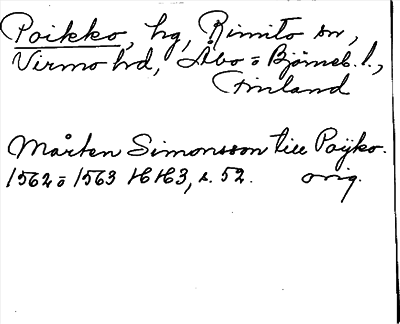 Poikko, hg, Rimito sn,
Virmo hd, Åbo o Björneb. l.,
Finland
Mårten Simonsson till Poÿko.
1562 o 1563 HH3, s. 52. orig.